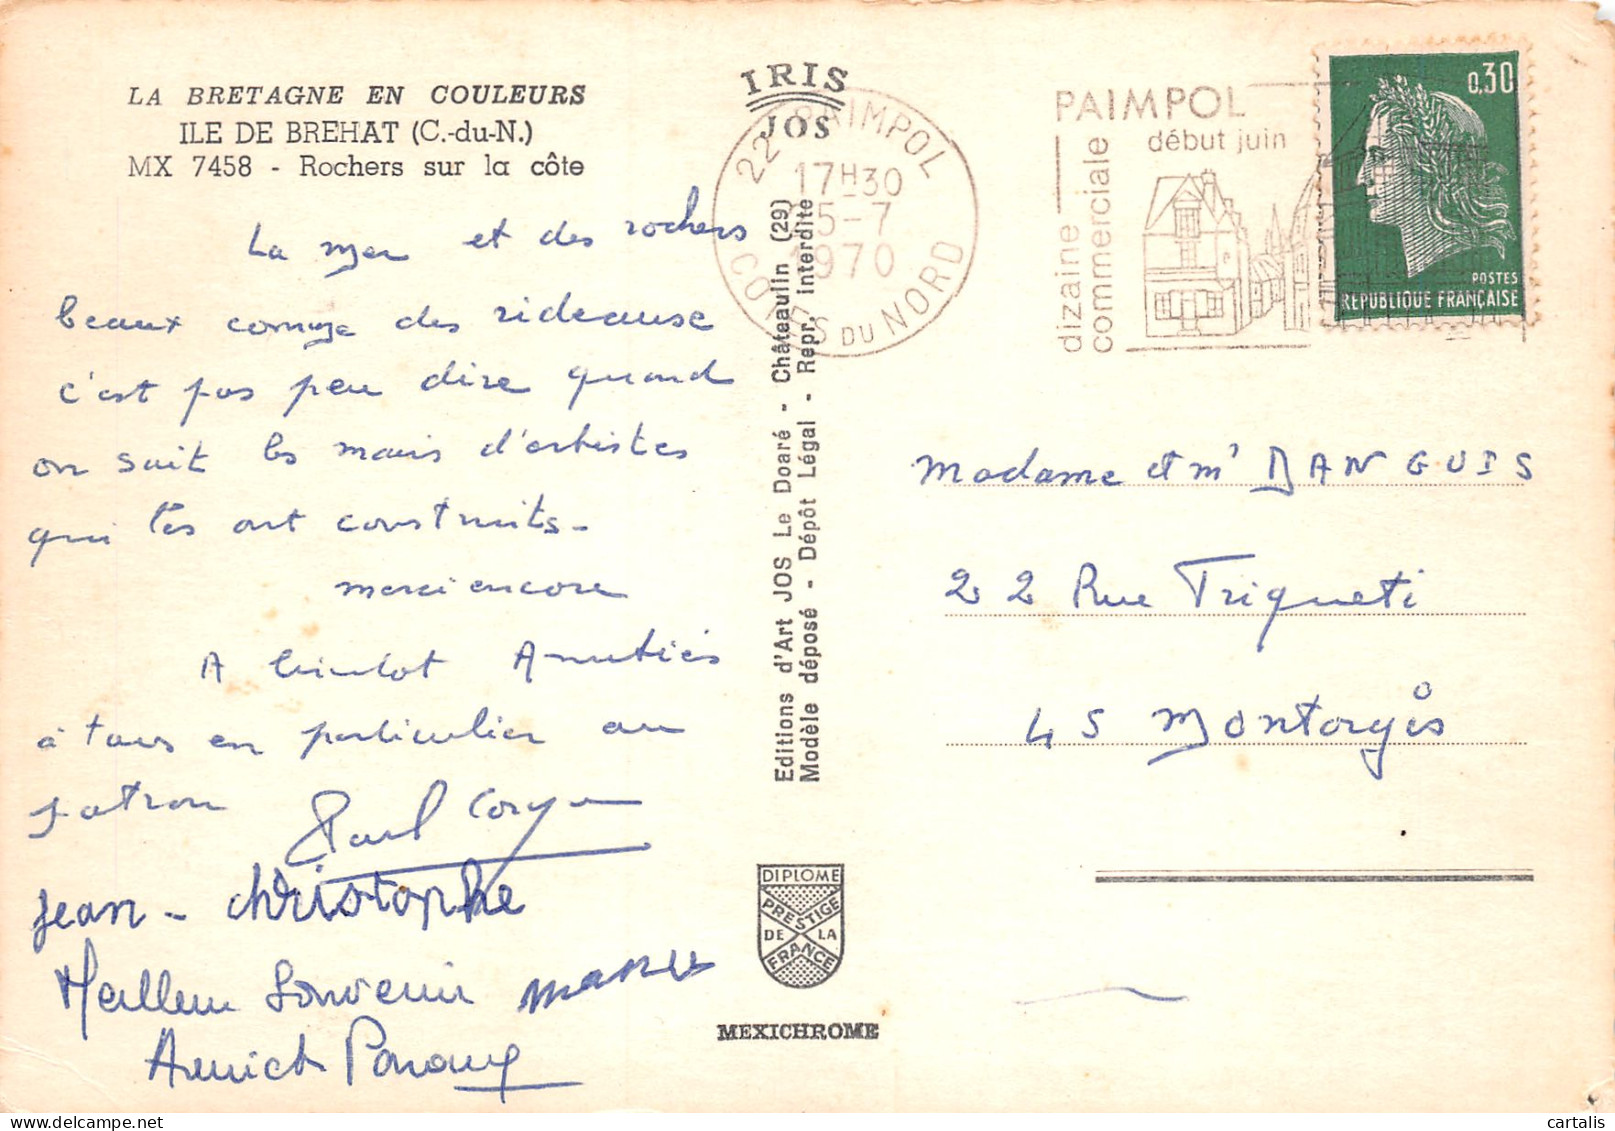 LA BRETAGNE EN COULEURS
ILE DE BREHAT (C.-du-N.)
MX 7458 - Rochers sur la côte
La mer et des rochers
beaux comme des rideause
c'est pas peu dire quand
on sait les mains d'artistes
qui les ont construits-
merci encore
A bientot Amitiés
à tous en particulier au
patron Paul
Jean-christophe
Meilleur Souvenir
Annick
IRIS
JOS
Editions d'Art JOS Le Doaré - Châteaulin (29)
Modèle déposé - Dépôt Légal - Repr. interdite
DIPLOME
PRESTIGE
DE LA
FRANCE
MEXICHROME
22 PAIMPOL
17H30
5-7
1970
COTES DU NORD
PAIMPOL
début juin
dizaine
commerciale
0,30
POSTES
REPUBLIQUE FRANÇAISE
Madame et mr DANGUIS
22 Rue Triqueti
45 Montargis
cartalis
www.delcampe.net